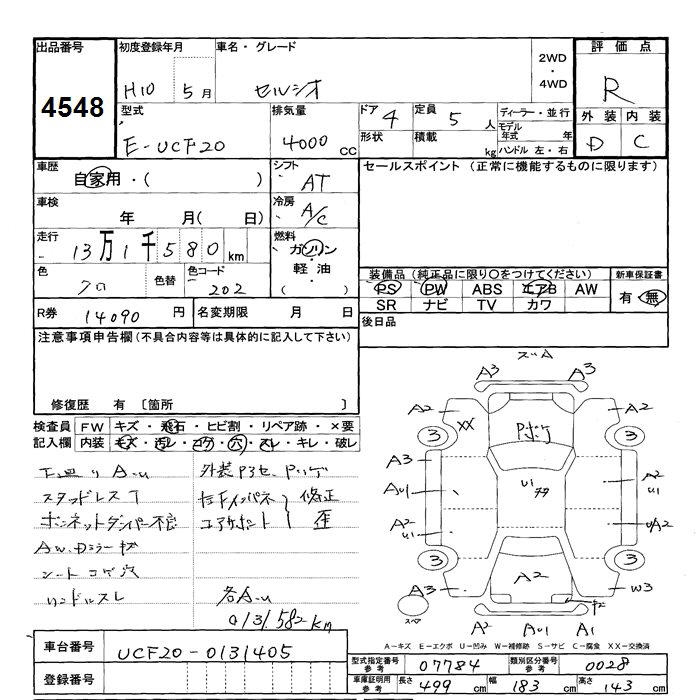 出品番号
4548
初度登録年月
H10 5月
車名・グレード
セルシオ
2WD
・
4WD
評価点
R
外装 内装
D C
型式
E-UCF20
排気量
4000 CC
ドア 4
形状
定員 5 人
積載 kg
ディーラー・並行
モデル年式 年
ハンドル 左・右
車歴
自家用・( )
シフト
AT
セールスポイント (正常に機能するものに限ります)
車検
年 月( 日)
冷房
A/C
走行
13万1千580km
燃料
ガソリン
・
軽油
( )
色
クロ
色替
色コード
202
装備品 (純正品に限り○をつけてください)
PS PW ABS エアB AW
SR ナビ TV カワ
新車保証書
有 無
R券 14090 円
名変期限 月 日
後日品
注意事項申告欄 (不具合内容等は具体的に記入して下さい)
修復歴 有 〔箇所 〕
検査員 FW キズ・飛石・ヒビ割・リペア跡・×要
記入欄 内装 キズ・汚レ・コゲ・穴・スレ・キレ・破レ
下廻りAu
スタッドレスT
ボンネットダンパー不良
シートコゲ穴
ハンドルスレ
外装
修正
歪
各Au
131.582KM
ススA
A3 A3
A2 XX Pボケ A2
3 3
A3 A2
U1
AU1 U1
A2 U1 UA2
3 3
A3 A2 W3
スペア
A2 AU1 A1
A-キズ E-エクボ U-凹み W-補修跡 S-サビ C-腐食 XX-交換済
車台番号 UCF20-0131405
登録番号
型式指定番号 参考 07784
類別区分番号 参考 0028
車庫証明用 参考 長さ 499 cm 幅 183 cm 高さ 143 cm